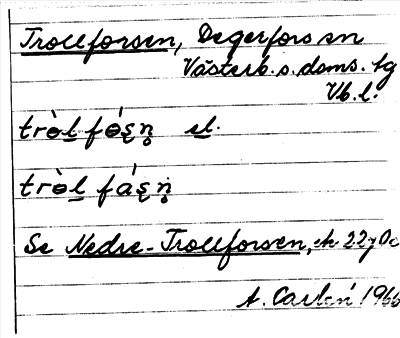 Trollforsen, Degerfors sn
Västerb. s. doms. tg
Vb. l.
tròl fósn el.
tròl fásn
Se Nedre-Trollforsen, ek 22
A. Carlén 1966